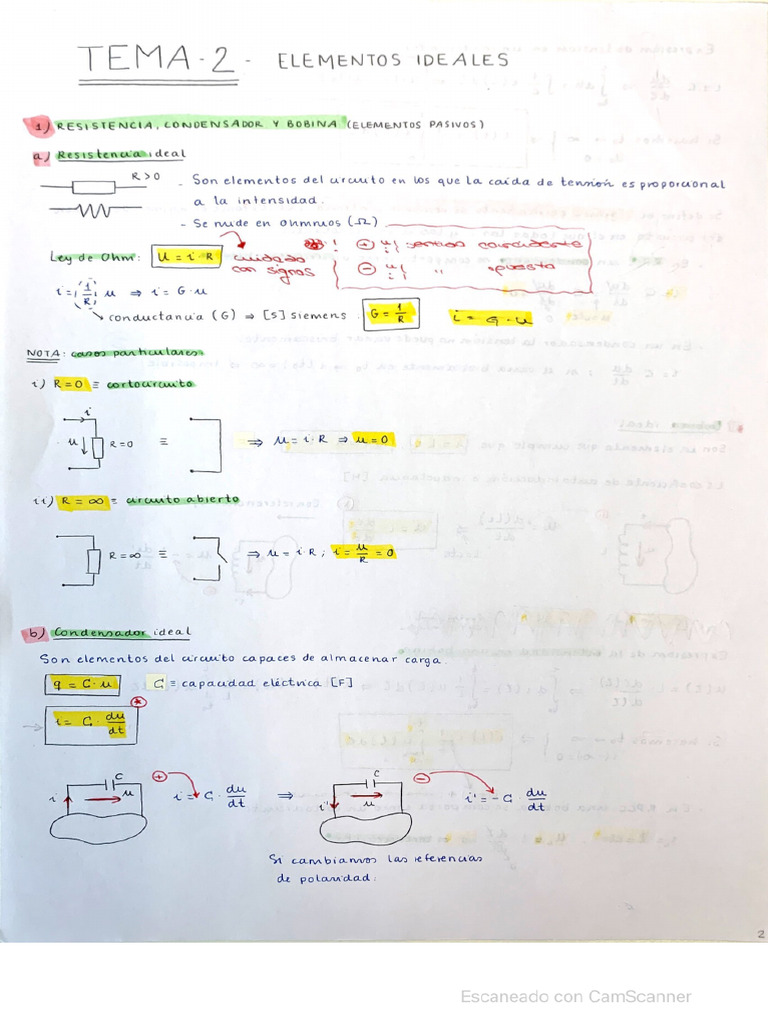 TEMA-2- ELEMENTOS IDEALES
1) RESISTENCIA, CONDENSADOR Y BOBINA (ELEMENTOS PASIVOS)
a) Resistencia ideal
R>0
- Son elementos del circuito en los que la caída de tensión es proporcional
a la intensidad.
- Se mide en ohmnios (Ω)
Ley de Ohm: U = i·R cuidado
con signos
! ⊕ u i sentido coincidente
⊖ u i " opuesto
i = 1/R u ⇒ i = G·u
conductancia (G) ⇒ [S] siemens G = 1/R i = G·u
NOTA: casos particulares
i) R=0 ≡ cortocircuito
i
u R=0 ≡ ⇒ u = i·R ⇒ u=0
ii) R=∞ ≡ circuito abierto
R=∞ ≡ ⇒ u = i·R ; i = u/R = 0
b) Condensador ideal
Son elementos del circuito capaces de almacenar carga.
q = C·u C ≡ capacidad eléctrica [F]
i = C· du/dt *
i C u ⊕ i = C· du/dt ⇒ i' C u ⊖ i' = -C· du/dt
Si cambiamos las referencias
de polaridad.
2
Escaneado con CamScanner